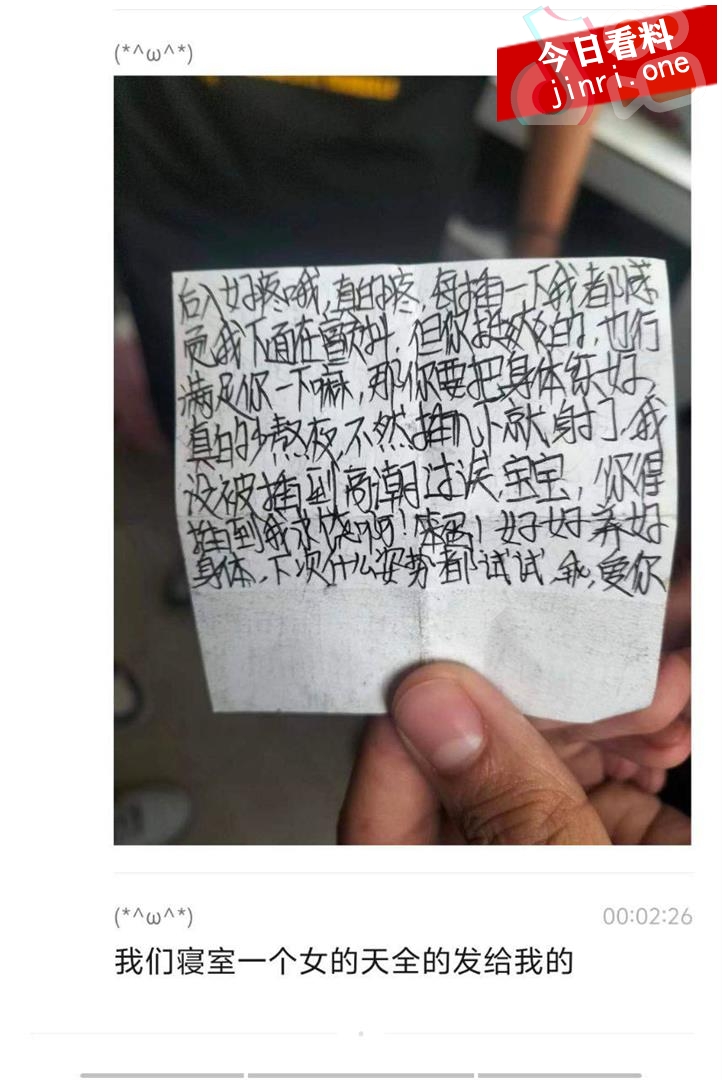 (*^ω^*)
今日看料
jinri.one
后入好疼哦,真的好疼,每插一下我都感
觉我下面在,但你挺的,也行
满足你一下嘛,那你要把身体练好
真的少熬夜,不然插几下就射了,我
没被插到高潮过诶,宝宝,你得
插到我求饶啊!!好好养好
身体,下次什么姿势都试试,我,爱你
(*^ω^*)
00:02:26
我们寝室一个女的天全的发给我的